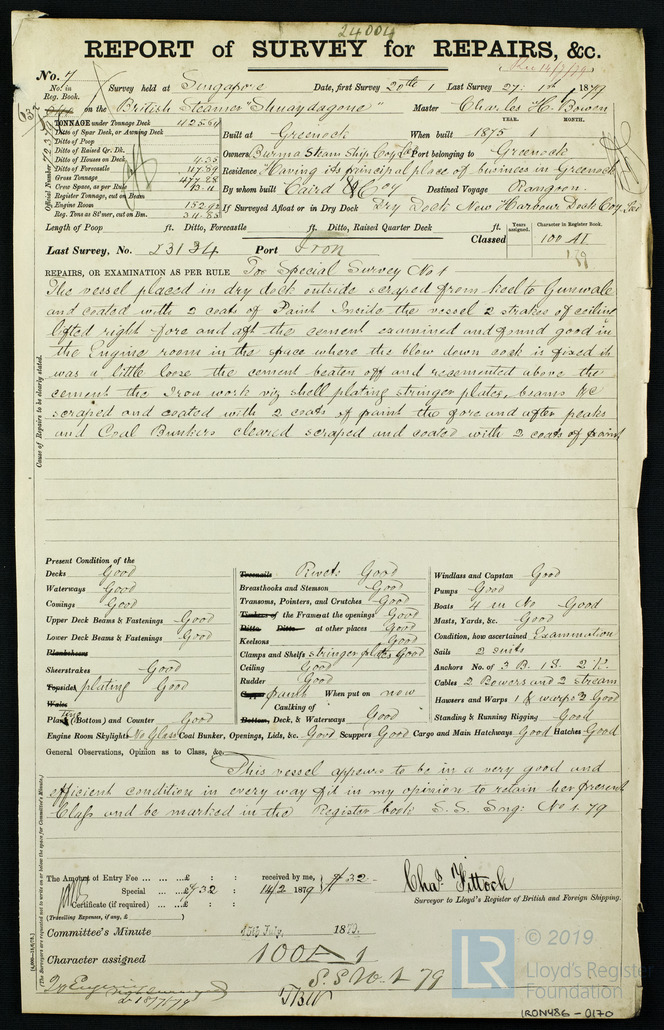 24004
REPORT of SURVEY for REPAIRS, &c.
No. 7 Survey held at Singapore Date, first Survey 20th 1 Last Survey 27: 1st 1879
No. in Reg. Book.
on the British Steamer "Shuaydagone" Master Charles H. Bowen
TONNAGE under Tonnage Deck 425.64
Ditto of Spar Deck, or Awning Deck
Ditto of Poop
Ditto of Raised Qr. Dk.
Ditto of Houses on Deck 4.35
Ditto of Forecastle
Gross Tonnage 477.28
Crew Space, as per Rule
Register Tonnage, cut on Beam
Engine Room 152.92
Reg. Tons as St'mer, cut on Bm. 311.85
Official Number
YEAR. MONTH.
Built at Greenock When built 1875 1
Owners Burma Steam Ship Coy Ld Port belonging to Greenock
Residence Having its principal place of business in Greenock
By whom built Caird & Coy Destined Voyage Rangoon
If Surveyed Afloat or in Dry Dock Dry Dock New Harbour Dock Coy.
Length of Poop ft. Ditto, Forecastle ft. Ditto, Raised Quarter Deck ft.
Years assigned. Character in Register Book.
Last Survey, No. 23134 Port Iron Classed 100 A1
REPAIRS, OR EXAMINATION AS PER RULE For Special Survey No 1
The vessel placed in dry dock outside scraped from keel to Gunwale
and coated with 2 coats of Paint Inside the vessel 2 strakes of ceiling
lifted right fore and aft the cement examined and found good in
the Engine room in the space where the blow down cock is fixed it
was a little loose the cement beaten off and recemented above the
cement the Iron work viz shell plating stringer plates, beams &c
scraped and coated with 2 coats of paint the fore and after peaks
and Coal Bunkers cleared scraped and coated with 2 coats of paint
Cause of Repairs to be clearly stated.
Present Condition of the
Decks Good
Waterways Good
Comings Good
Upper Deck Beams & Fastenings Good
Lower Deck Beams & Fastenings Good
Planksheers
Sheerstrakes Good
Topsides plating Good
Wales
Plank (Bottom) and Counter Good
Treenails Rivets Good
Breasthooks and Stemson Good
Transoms, Pointers, and Crutches Good
Timbers of the Frame at the openings Good
Ditto Ditto at other places Good
Keelsons Good
Clamps and Shelfs stringer plates Good
Ceiling Good
Rudder Good
Copper paint When put on new
Caulking of
Bottom, Deck, & Waterways Good
Windlass and Capstan Good
Pumps Good
Boats 4 in No Good
Masts, Yards, &c. Good
Condition, how ascertained Examination
Sails 2 suits
Anchors No. of 3 B. 1 S. 2 K.
Cables 2 Bowers and 2 stream
Hawsers and Warps 1 & warps 3 Good
Standing & Running Rigging Good
Engine Room Skylight No Glass Coal Bunker, Openings, Lids, &c. Good Scuppers Good Cargo and Main Hatchways Good Hatches Good
General Observations, Opinion as to Class, &c.
This vessel appears to be in a very good and
efficient condition in every way fit in my opinion to retain her present
Class and be marked in the Register book S.S. Sng: No 1. 79
The Amount of Entry Fee ... £ : : received by me,
Special ... £ 32 : : 14/2 1879 $32
Certificate (if required) ... £ : :
(Travelling Expenses, if any, £ )
Chas. Fittock
Surveyor to Lloyd's Register of British and Foreign Shipping.
Committee's Minute 15th July, 1879.
Character assigned 100A1
S.S. No. 1 79
© 2019
LR Lloyd's Register
Foundation
IRON486-0170